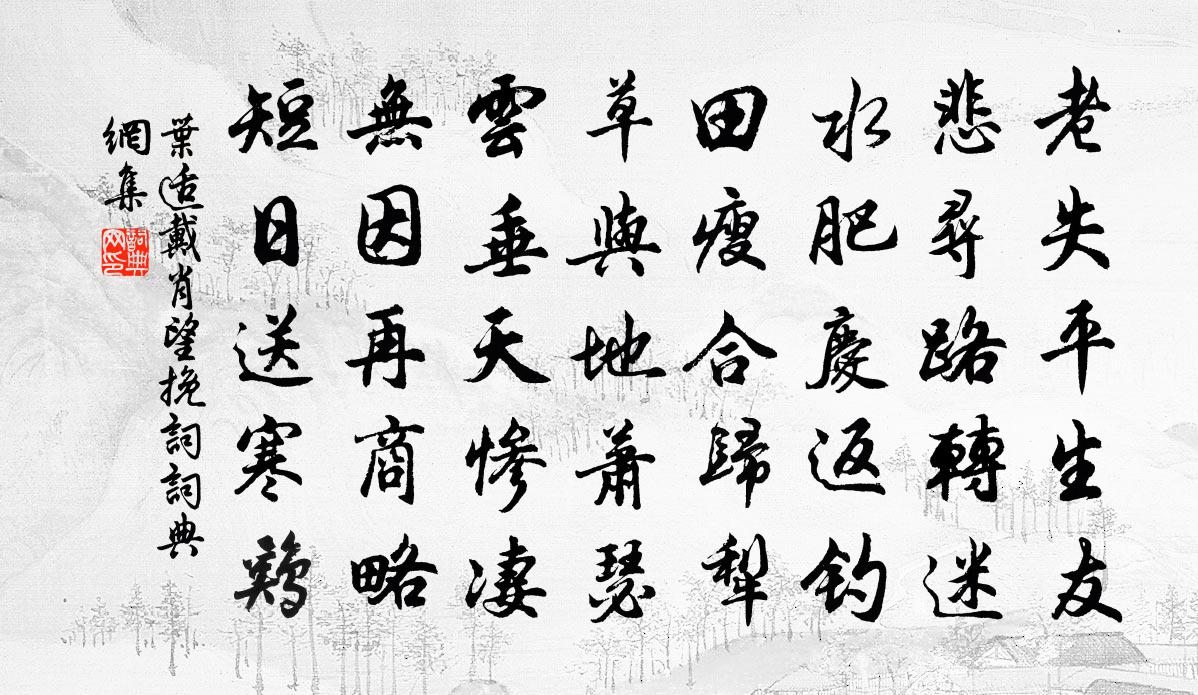 老失平生友
悲尋路轉迷
水肥慶返釣
田瘦合歸犁
草與地蕭瑟
雲垂天慘凄
無因再商略
短日送寒鷄
葉适戴肖望挽詞詞典
網集
詞典
网印